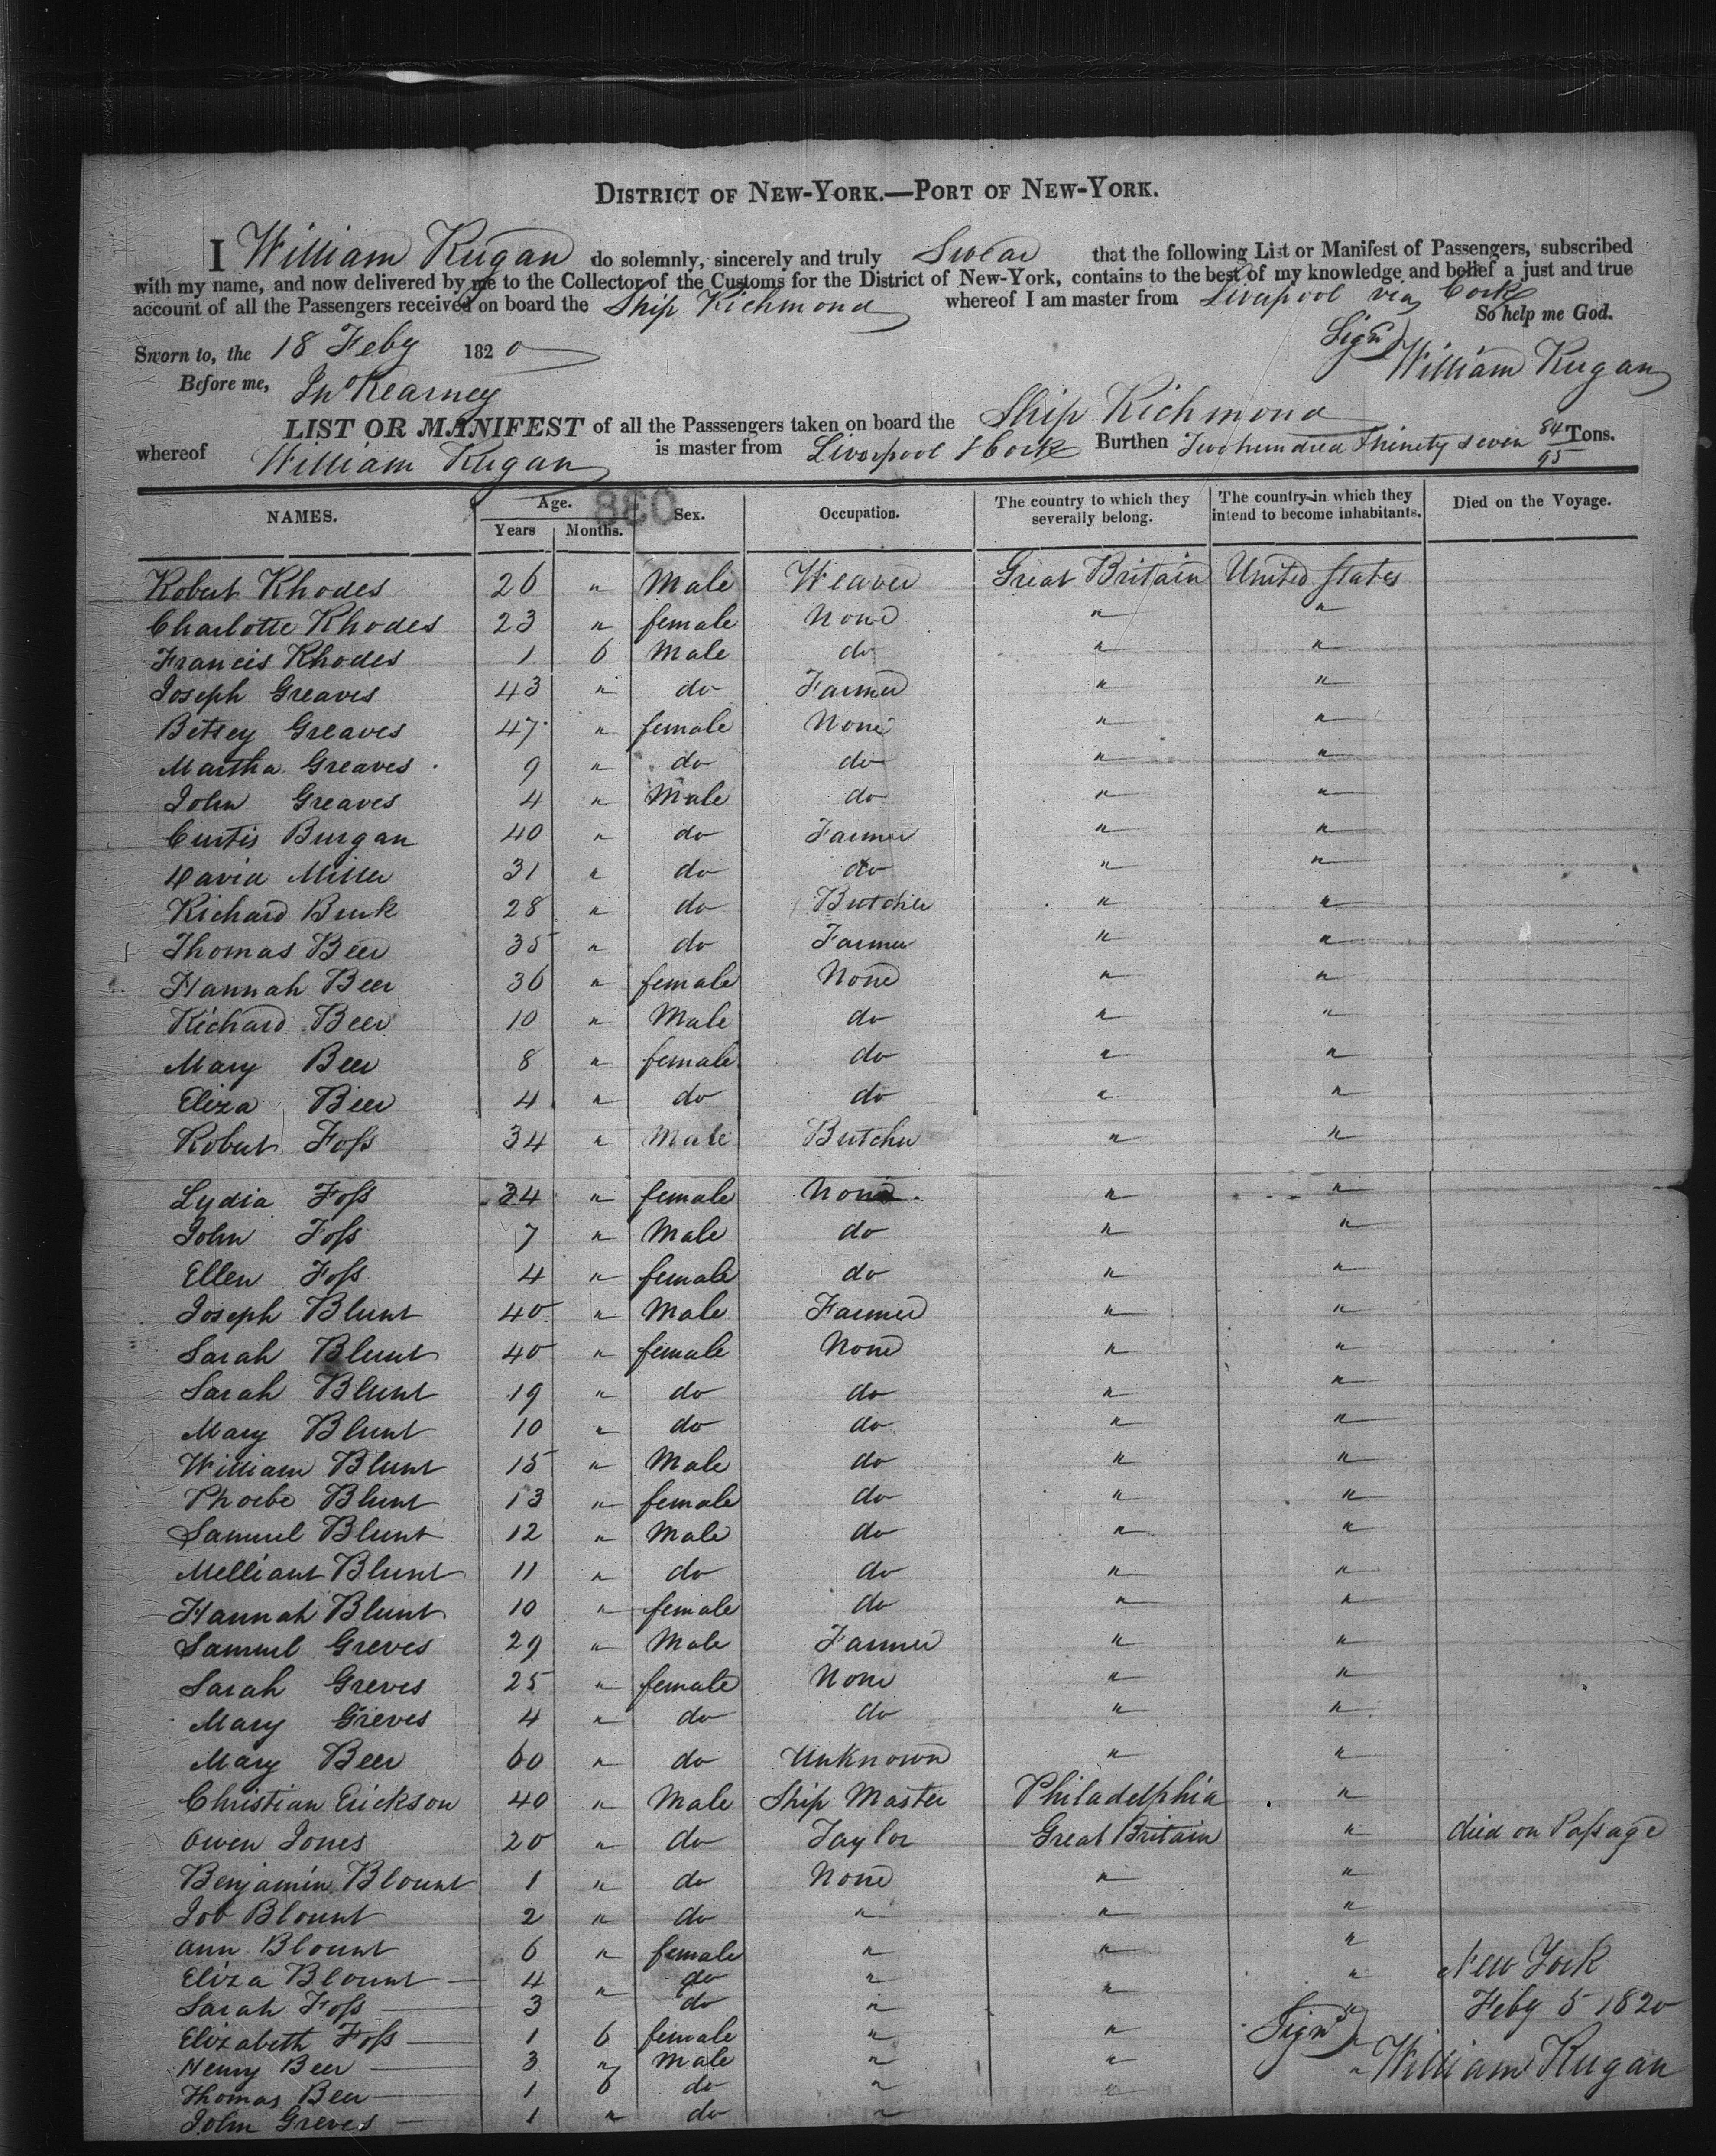 DISTRICT OF NEW-YORK.—PORT OF NEW-YORK.
I William Kugan do solemnly, sincerely and truly Swear that the following List or Manifest of Passengers, subscribed
with my name, and now delivered by me to the Collector of the Customs for the District of New-York, contains to the best of my knowledge and belief a just and true
account of all the Passengers received on board the Ship Richmond whereof I am master from Liverpool via Cork
So help me God.
Sworn to, the 18 Feby 1820
Signd William Kugan
Before me, Jno Kearney
LIST OR MANIFEST of all the Passsengers taken on board the Ship Richmond
whereof William Kugan is master from Liverpool & Cork Burthen Two hundred & ninety seven 84/95 Tons.
NAMES. Age. Years Months. Sex. Occupation. The country to which they severally belong. The country in which they intend to become inhabitants. Died on the Voyage.
038
Robert Rhodes 26 " Male Weaver Great Britain United States
Charlotte Rhodes 23 " female None " "
Francis Rhodes 1 6 Male do " "
Joseph Greaves 43 " do Farmer " "
Betsey Greaves 47 " female None " "
Martha Greaves 9 " do do " "
John Greaves 4 " Male do " "
Curtis Burgan 40 " do Farmer " "
David Miller 31 " do do " "
Richard Burk 28 " do Butcher " "
Thomas Beer 35 " do Farmer " "
Hannah Beer 36 " female None " "
Richard Beer 10 " Male do " "
Mary Beer 8 " female do " "
Eliza Beer 4 " do do " "
Robert Foss 34 " Male Butcher " "
Lydia Foss 34 " female None " "
John Foss 7 " Male do " "
Ellen Foss 4 " female do " "
Joseph Blunt 40 " Male Farmer " "
Sarah Blunt 40 " female None " "
Sarah Blunt 19 " do do " "
Mary Blunt 10 " do do " "
William Blunt 15 " Male do " "
Phoebe Blunt 13 " female do " "
Samuel Blunt 12 " Male do " "
Melliant Blunt 11 " do do " "
Hannah Blunt 10 " female do " "
Samuel Greves 29 " Male Farmer " "
Sarah Greves 25 " female None " "
Mary Greves 4 " do do " "
Mary Beer 60 " do Unknown " "
Christian Erickson 40 " Male Ship Master Philadelphia "
Owen Jones 20 " do Taylor Great Britain " died on Passage
Benjamin Blount 1 " do None " "
Job Blount 2 " do " " "
Ann Blount 6 " female " " "
Eliza Blount 4 " do " " " New York
Sarah Foss 3 do " " Feby 5 1820
Elizabeth Foss 1 6 female " " " Signd
Henry Beer 3 " Male " " " William Kugan
Thomas Beer 1 6 do " "
John Greves 1 " do "